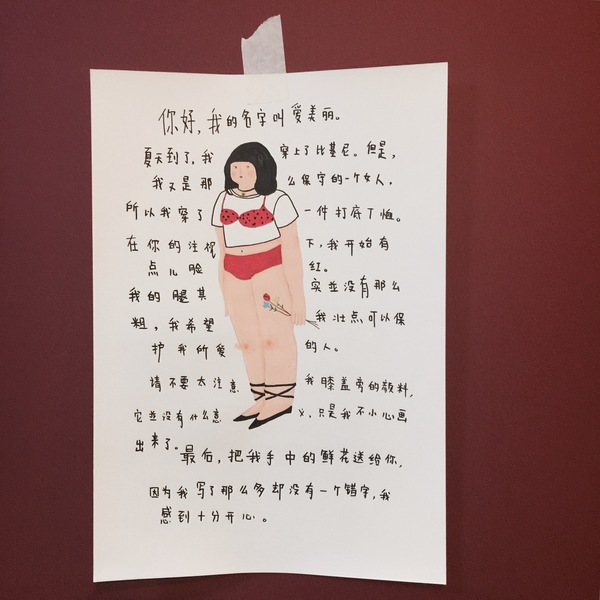 你好，我的名字叫爱美丽。
夏天到了，我穿上了比基尼。但是，
我又是那么保守的一个女人，
所以我穿了一件打底T恤。
在你的注视下，我开始有
点儿脸红。
我的腿其实並没有那么
粗，我希望我壮点可以保
护我所爱的人。
请不要太注意我膝盖旁的颜料，
它並没有什么意义，只是我不小心画
出来了。
最后，把我手中的鲜花送给你，
因为我写了那么多却没有一个错字，我
感到十分开心。